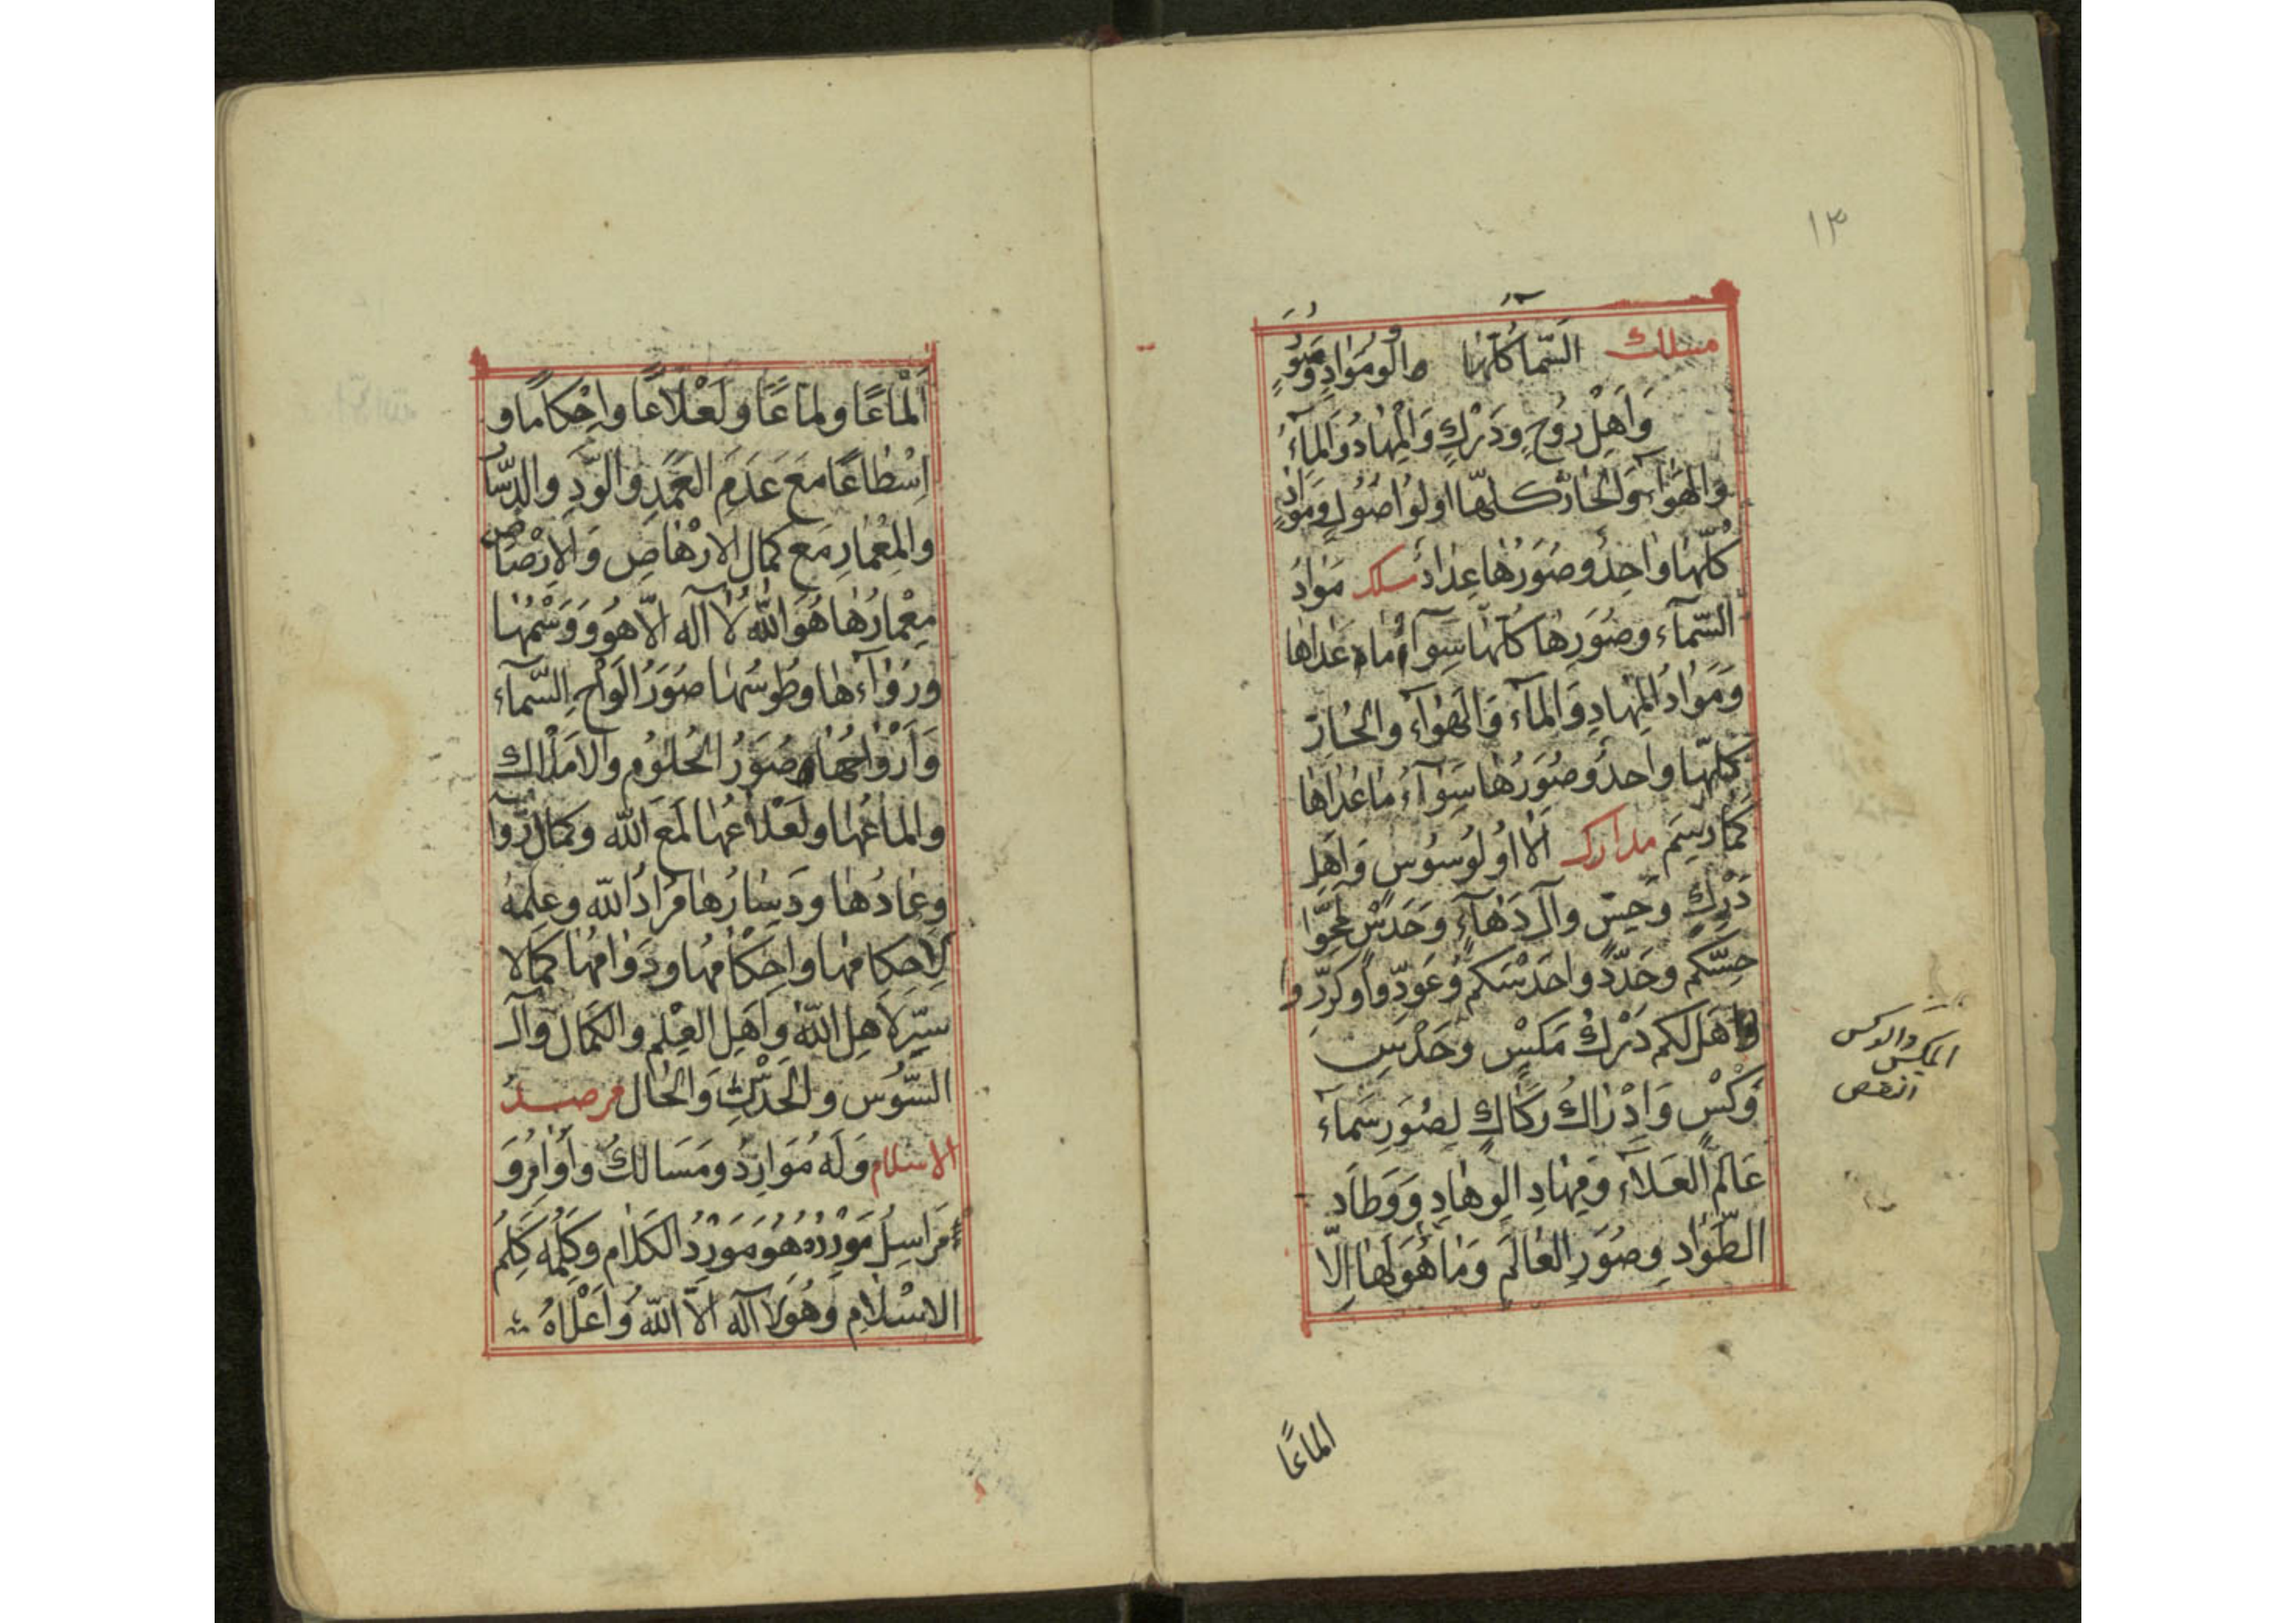 ١٣
مسلك السّماء كلّها والو موادٍ وصُوَرٍ
وَاَهْلِ رُوْحٍ وَدَرْكٍ وَالْمِهادُ وَالمآءُ
والهَوَآءُ وَالْحَارُّ كلّها اولوا اصُوْلٍ وَموَادٍّ
كُلّهَا واحِدٌ وصُوَرُهَا عِدَادٌ سلك مَوَادُ
السّمآءِ وصُوَرِها كلّها سِوَآءُ ما عَداها
وَمَوَادُ المِهادِ وَالمآءِ وَالهَوَآءِ والحَارّ
كلّها واحدٌ وصُوَرُها سِوَآءُ ما عَدَاها
كَمَا رُسِمَ مدارك اَلا اُولُوسُوْسٍ وَاَهلِ
دَرْكٍ وَحِسٍّ وآلَ دَهآءٍ وَحَدْسٍ نَحّوا
حِسّكم وحَدّدوا حَدْسَكم وعَوّدوا وكرّروا
هَل لكم دَرْكُ مَكسٍ وحَدْسِ
وَكْسٍ وَادْرَاكُ رَكَاكٍ لِصُوَرِ سَمآءِ
عَالَمِ العَلاَءِ وَمِهَادِ الوِهَادِ وَوَطَادِ
الطّوَادِ وصُوَرِ العَالَمِ وَمَا هُوَ لَهَا اِلاّ
المكس والوكس
انقص
الماعًا
اَلْمَاعًا ولماعًا ولَعْلَاعًا واِحْكامًا و
اِسْطَاعًا مَعَ عَدَمِ العَمَدِ وَالوَدِ والدّسَار
والمِعْمَارِ مَعَ كمَال الارْهَاصِ وَالاِرْصَاصِ
مِعْمارُهَا هُوَ اللّٰهُ لَا اله الّا هُوَ وَوَسْمُهَا
ورُوَآءُهَا وطُوسُهَا صُوَرُ الوَاحِ السّمآء
وَاَرْوَاحُهَا صُوَرُ الحُلُوْمِ والاَمْلَاك
والماعُهَا ولَعْلَاعُهَا لَمْعَ اللّٰه وكمَالُ رُوَا
وعِمَادُهَا ودِسَارُهَا مُرَادُ اللّٰه وعِلمهُ
لِاِحكامِها واِحْكَامُهَا ودَوَامُهَا كمَالا
سِرّ لاَهلِ اللّٰه وَاَهلِ العِلمِ والكَمَال وَآل
السُّوس والحَدْسِ وَالحَال مرصد
الاسلام وَلَهُ مَوَارِدُ ومَسَالكُ وأَوَامِرُ وَ
مَرَاسِلُ مَوْرِدُهُ هُوَ مَوْرِدُ الكَلَامِ وكَلِمُهُ كَلِمُ
الاسْلَامِ وَهُوَ لَا اله الّا اللّٰه وَاَعْلَاهُ